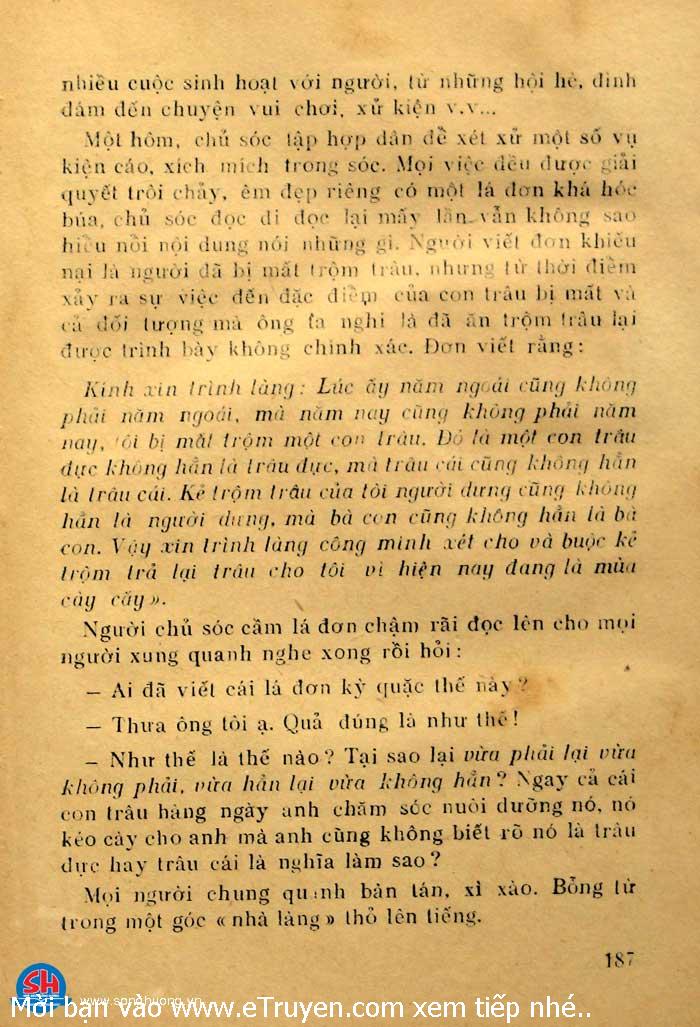 nhiều cuộc sinh hoạt với người, từ những hội hè, đình
đám đến chuyện vui chơi, xử kiện v.v...
Một hôm, chủ sóc tập hợp dân để xét xử một số vụ
kiện cáo, xích mích trong sóc. Mọi việc đều được giải
quyết trôi chảy, êm đẹp riêng có một lá đơn khá hóc
búa, chủ sóc đọc đi đọc lại mấy lần vẫn không sao
hiểu nổi nội dung nói những gì. Người viết đơn khiếu
nại là người đã bị mất trộm trâu, nhưng từ thời điểm
xảy ra sự việc đến đặc điểm của con trâu bị mất và
cả đối tượng mà ông ta nghi là đã ăn trộm trâu lại
được trình bày không chính xác. Đơn viết rằng:
Kính xin trình làng: Lúc ấy năm ngoái cũng không
phải năm ngoái, mà năm nay cũng không phải năm
nay, tôi bị mất trộm một con trâu. Đó là một con trâu
đực không hẳn là trâu đực, mà trâu cái cũng không hẳn
là trâu cái. Kẻ trộm trâu của tôi người dưng cũng không
hẳn là người dưng, mà bà con cũng không hẳn là bà
con. Vậy xin trình làng công minh xét cho và buộc kẻ
trộm trả lại trâu cho tôi vì hiện nay đang là mùa
cày cấy».
Người chủ sóc cầm lá đơn chậm rãi đọc lên cho mọi
người xung quanh nghe xong rồi hỏi:
— Ai đã viết cái lá đơn kỳ quặc thế này?
— Thưa ông tôi ạ. Quả đúng là như thế!
— Như thế là thế nào? Tại sao lại vừa phải lại vừa
không phải, vừa hẳn lại vừa không hẳn? Ngay cả cái
con trâu hàng ngày anh chăm sóc nuôi dưỡng nó, nó
kéo cày cho anh mà anh cũng không biết rõ nó là trâu
đực hay trâu cái là nghĩa làm sao?
Mọi người chung quanh bàn tán, xì xào. Bỗng từ
trong một góc «nhà làng» thỏ lên tiếng.
187
SH
www.songhuong.vn
Mời bạn vào www.eTruyen.com xem tiếp nhé..